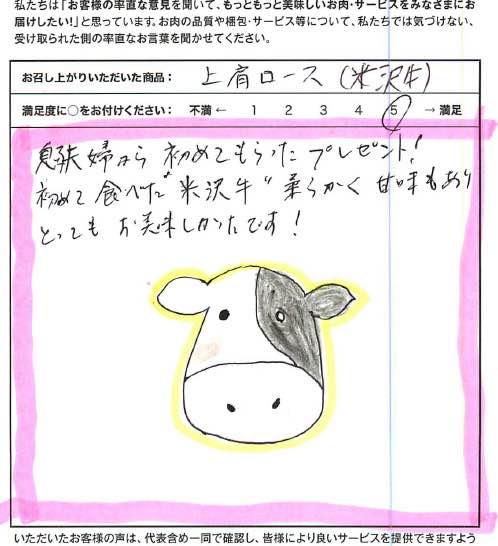 私たちは「お客様の率直な意見を聞いて、もっともっと美味しいお肉・サービスをみなさまにお
届けしたい!」と思っています。お肉の品質や梱包・サービス等について、私たちでは気づけない、
受け取られた側の率直なお言葉を聞かせてください。
お召し上がりいただいた商品: 上肩ロース (米沢牛)
満足度に○をお付けください: 不満 ← 1 2 3 4 5 → 満足
息子夫婦から 初めてもらった プレゼント!
初めて食べた"米沢牛"柔らかく 甘味もあり
とっても お美味しかたです!
いただいたお客様の声は、代表含め一同で確認し、皆様により良いサービスを提供できますよう